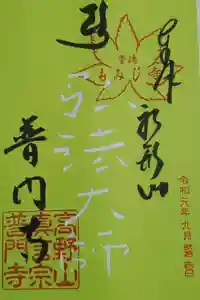 奉拝
船形山
豊橋
もみじ
弘法大師
普門寺
令和元年 九月
高野山
真言宗
普門寺